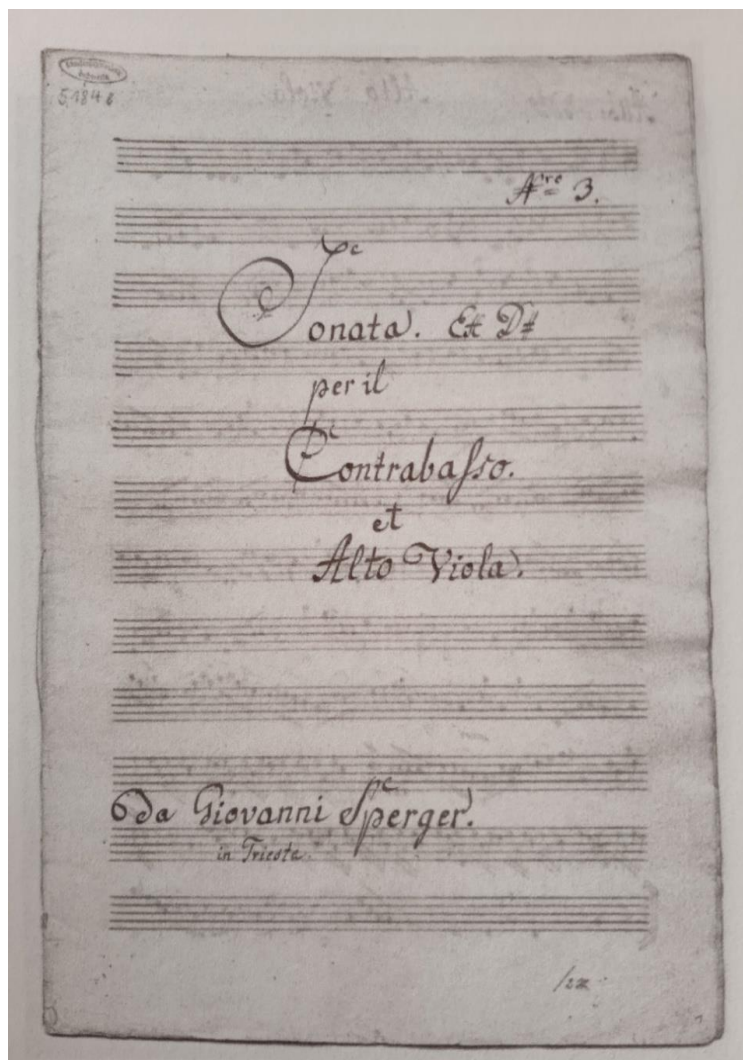 5184 b
Nro 3.
Sonata. Ex D#
per il
Contrabasso.
et
Alto Viola.
Da Giovanni Sperger.
in Trieste.